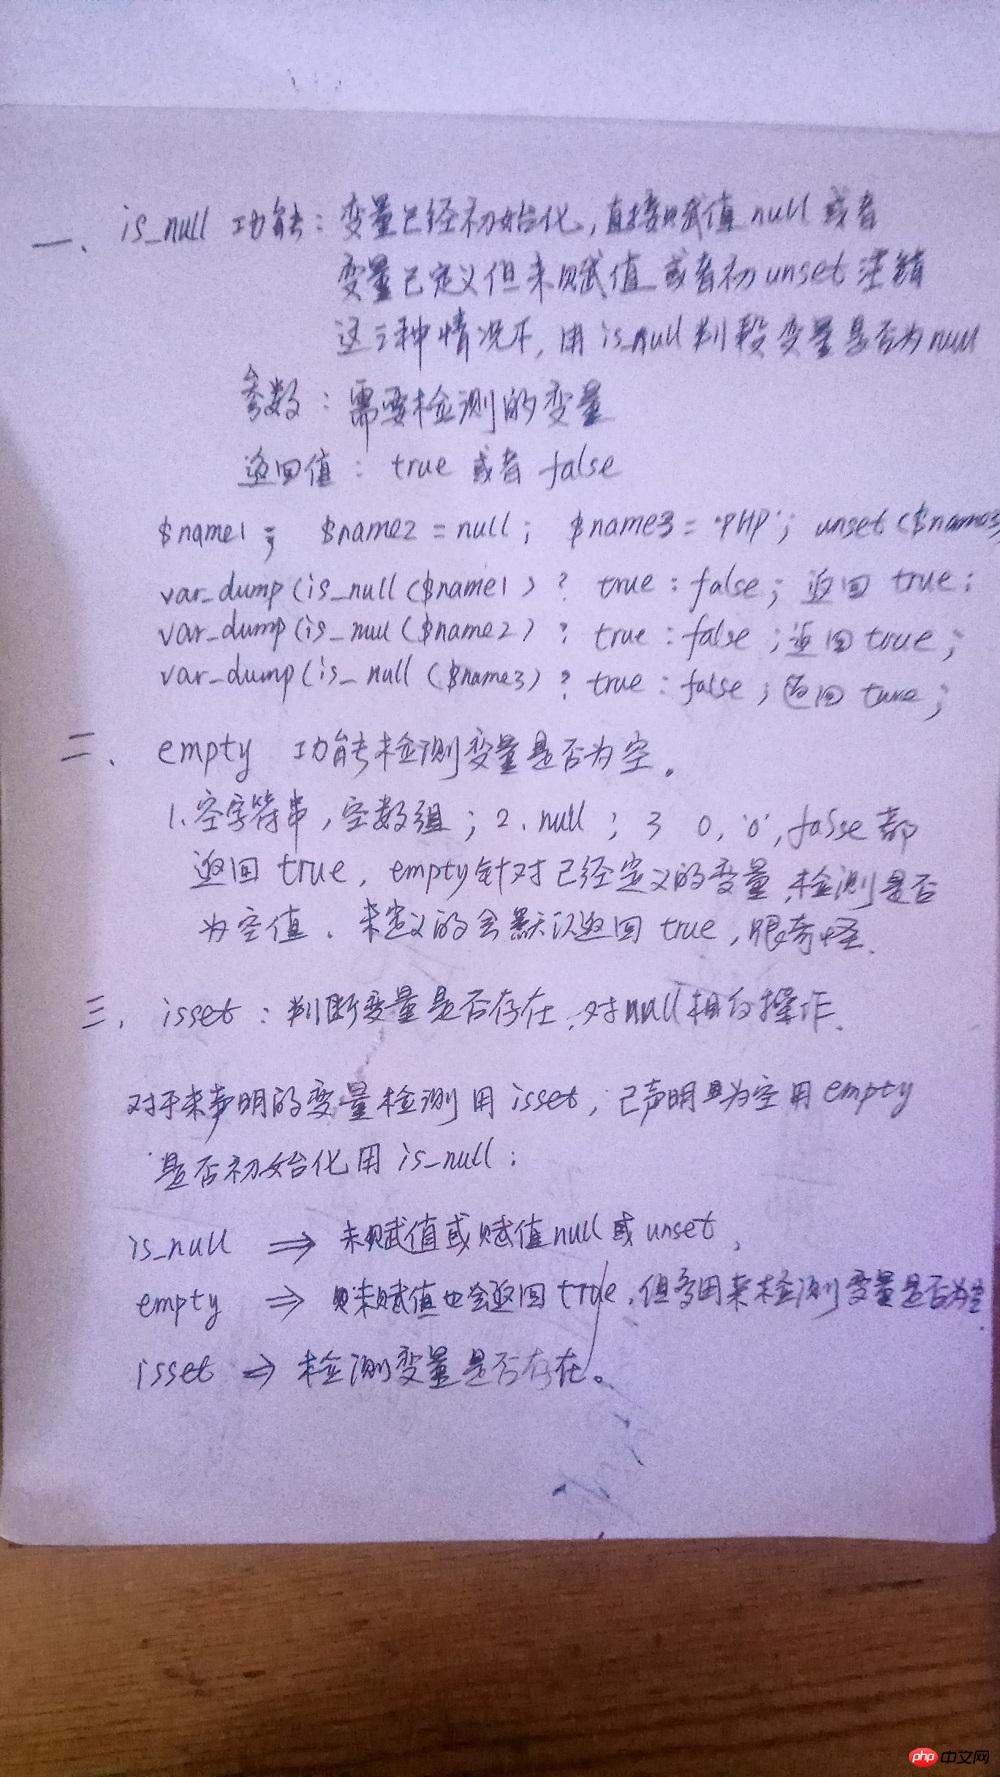 一、is_null 功能：变量已经初始化，直接赋值 null 或者
变量已定义但未赋值 或者初 unset 注销
这三种情况下，用 is_null 判段变量是否为null
参数：需要检测的变量
返回值：true 或者 false
$name1; $name2 = null; $name3 = 'PHP'; unset($name3
var_dump(is_null($name1) ? true : false; 返回 true;
var_dump(is_null($name2) ? true : false; 返回 true;
var_dump(is_null($name3) ? true : false; 返回 ture;
二、empty 功能检测变量是否为空。
1.空字符串，空数组；2.null；3 0,'0',false都
返回 true，empty针对已经定义的变量，检测是否
为空值、未定义的会默认返回 true，很奇怪.
三、isset：判断变量是否存在、对null相反操作.
对于未声明的变量检测用 isset，已声明且为空用 empty
是否初始化用 is_null；
is_null ⇒ 未赋值或赋值null或 unset，
empty ⇒ 未赋值也会返回 true，但多用来检测变量是否为空.
isset ⇒ 检测变量是否存在。
php 中文网